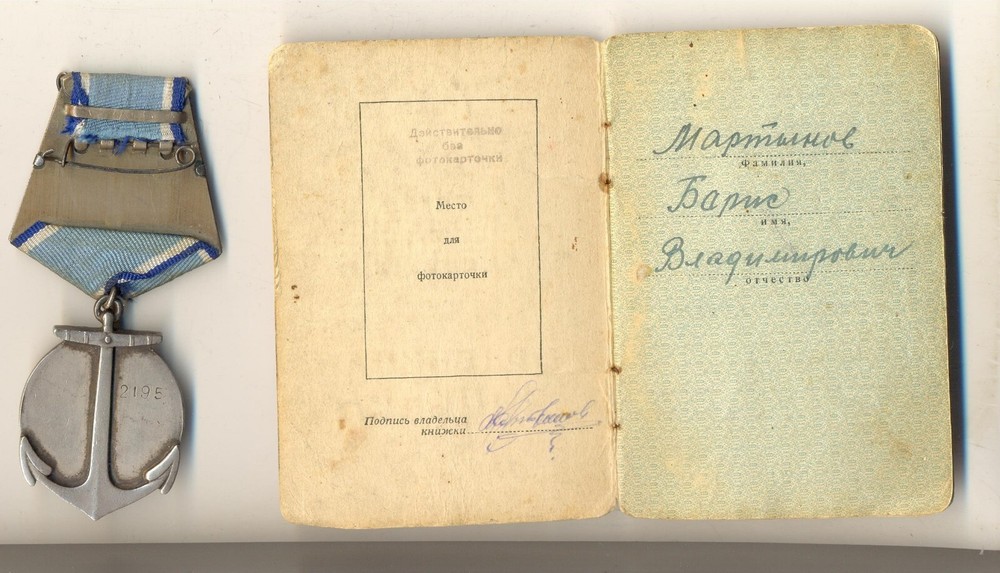 2195
Действительно
без
фотокарточки
Место
для
фотокарточки
Подпись владельца
книжки
Мартынов
Фамилия,
Барис
имя,
Владимирович
отчество